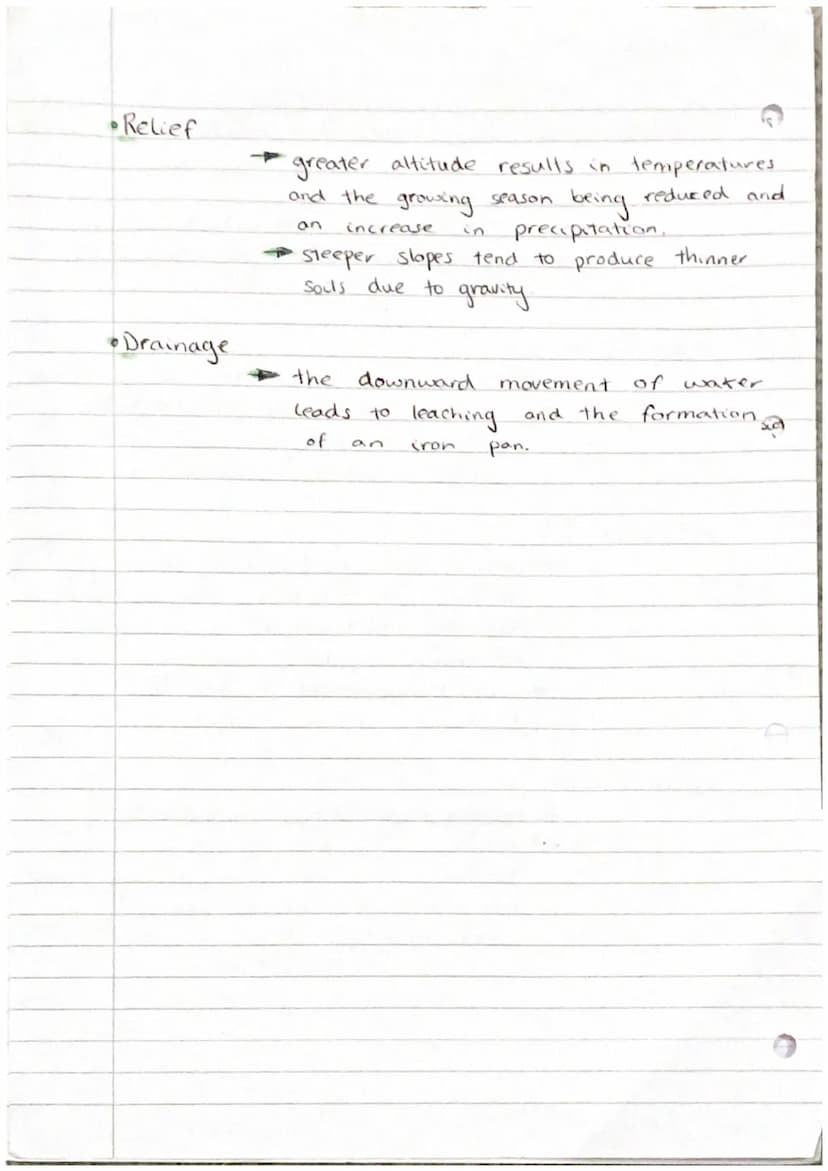 • Relief
→ greater altitude results in temperatures
and the growing season being reduced and
an increase in precipitation.
→ steeper slopes tend to produce thinner
soils due to gravity
• Drainage
→ the downward movement of water
leads to leaching and the formation
of an iron pan.